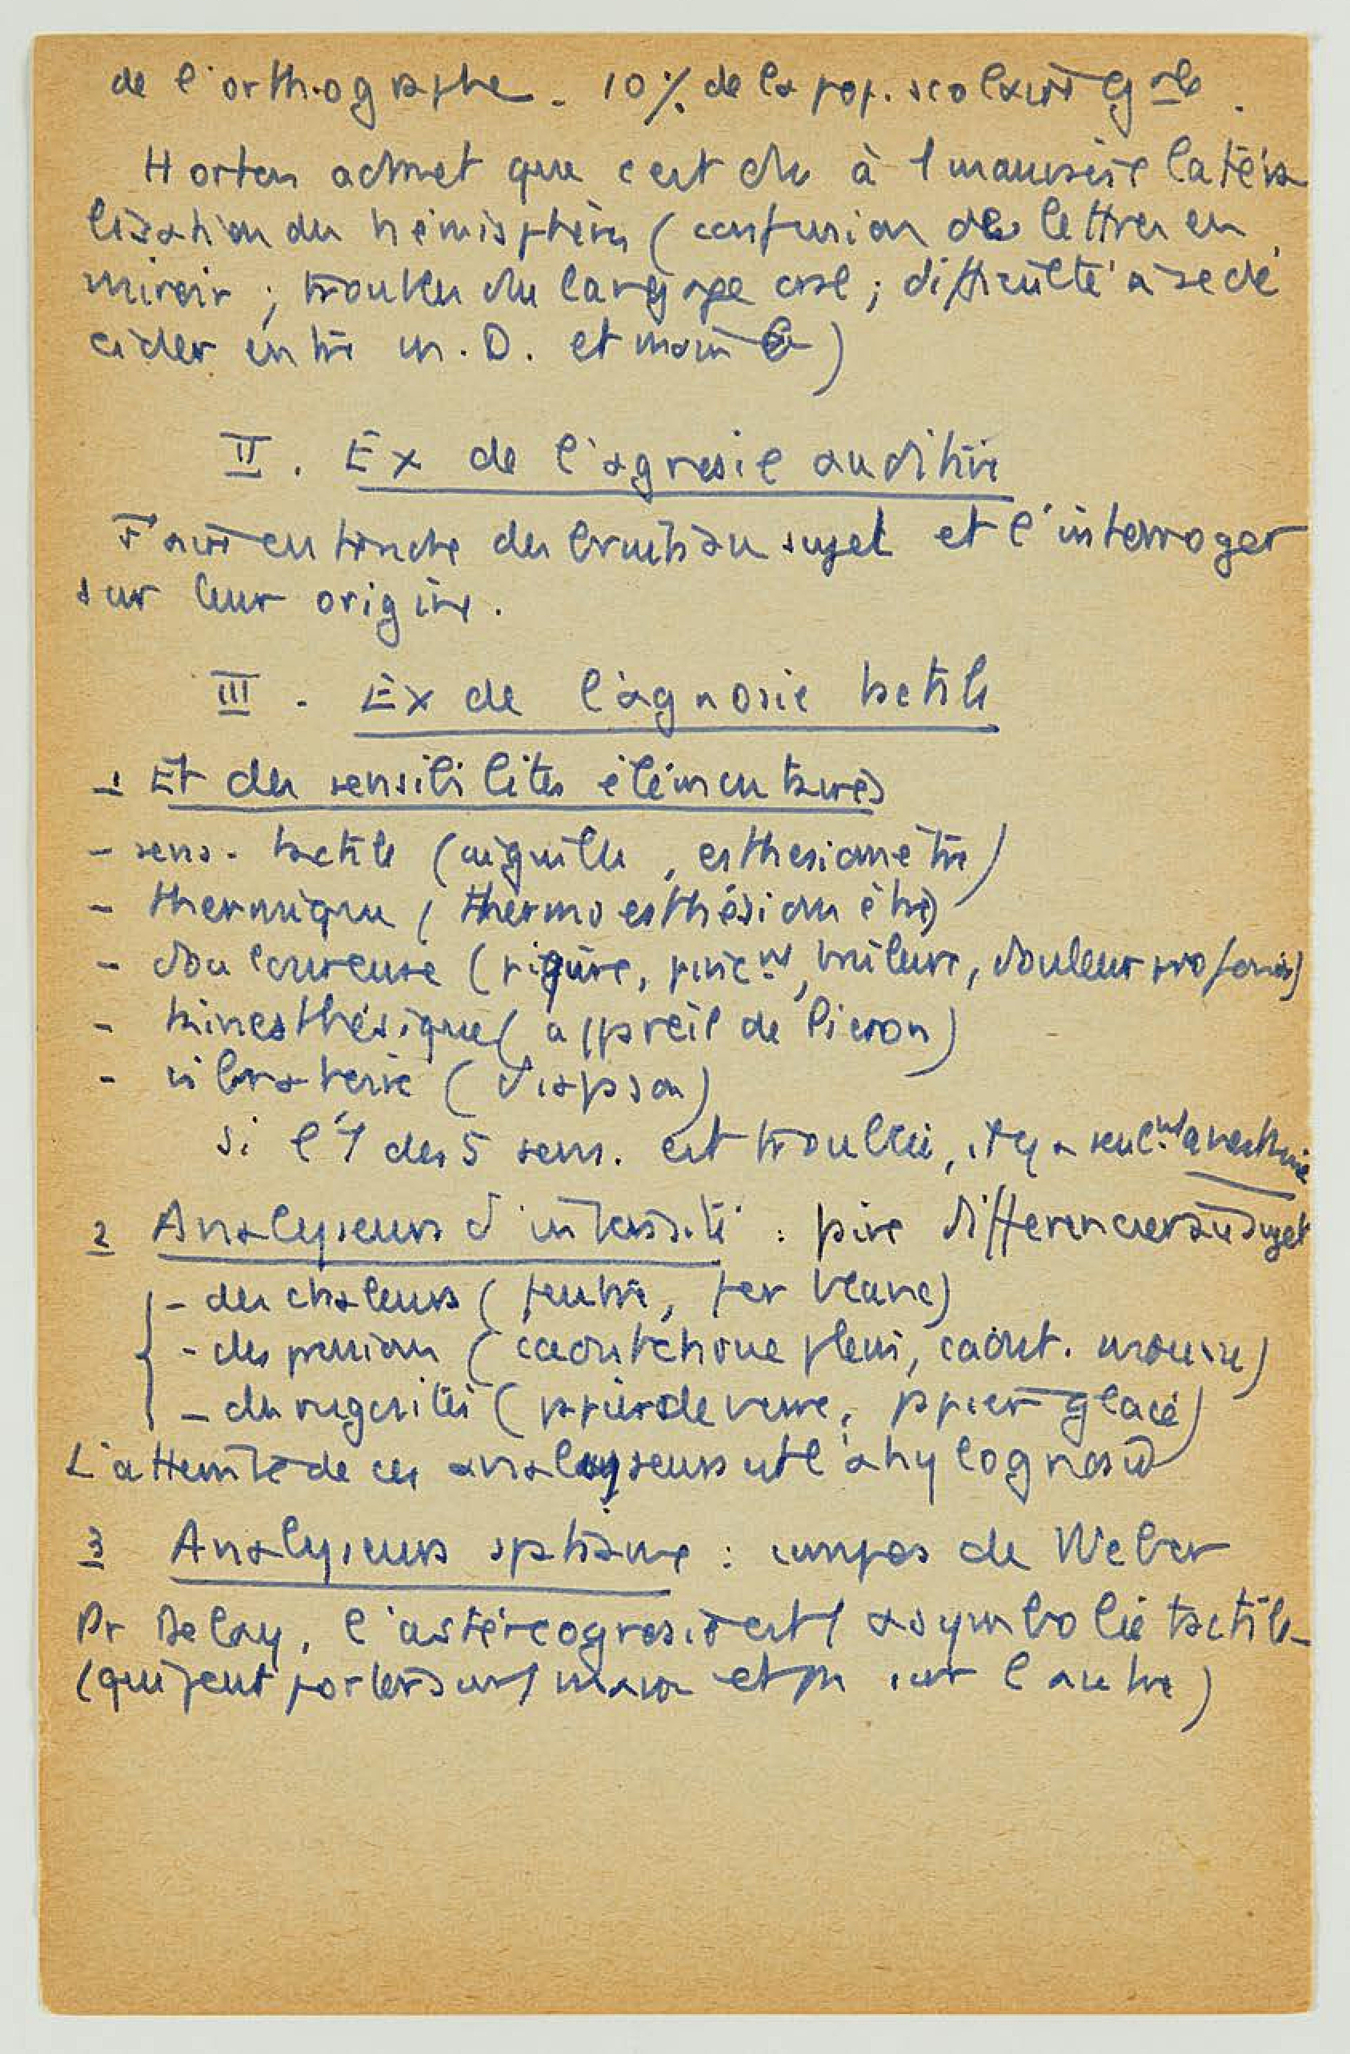 de l'orthographe _ 10% de la pop. scolaire gale.
Horton admet que c'est du à 1 mauvaise latéra
lisation du hémisphères (confusion des lettres en
miroir ; troubles du langage oral ; difficulté à se dé
cider entre m. D. et main G)
II. Ex de l'agnosie auditive
Faire entendre des bruits au sujet et l'interroger
sur leur origine.
III - Ex de l'agnosie tactile
1 Et des sensibilités élémentaires
- sens. tactile (aiguille, esthesiomètre)
- thermique (thermoesthésiomètre)
- douloureuse (piqûre, pincnt, brûlure, douleur profonde)
- kinesthésique (appareil de Pieron)
- vibratoire (diapason)
Si l'1 des 5 sens. est troublée, il y a seulnt anesthésie
2 Analyseurs d'intensité : faire différencier au sujet
- des chaleurs (feutre, fer blanc)
- des pression (caoutchouc plein, caout. mousse)
- des rugosités (papier de verre, papier glacé)
L'atteinte de ces analyseurs est l'ahylognosie
3 Analyseurs spatiaux : compas de Weber
Pr Delay, l'astéréognosie est 1 asymbolie tactile
(qui peut porter sur 1 main et pas sur l'autre)